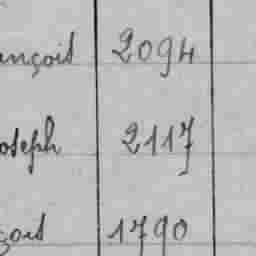 ançois 2094
oseph 2117
çois 1790